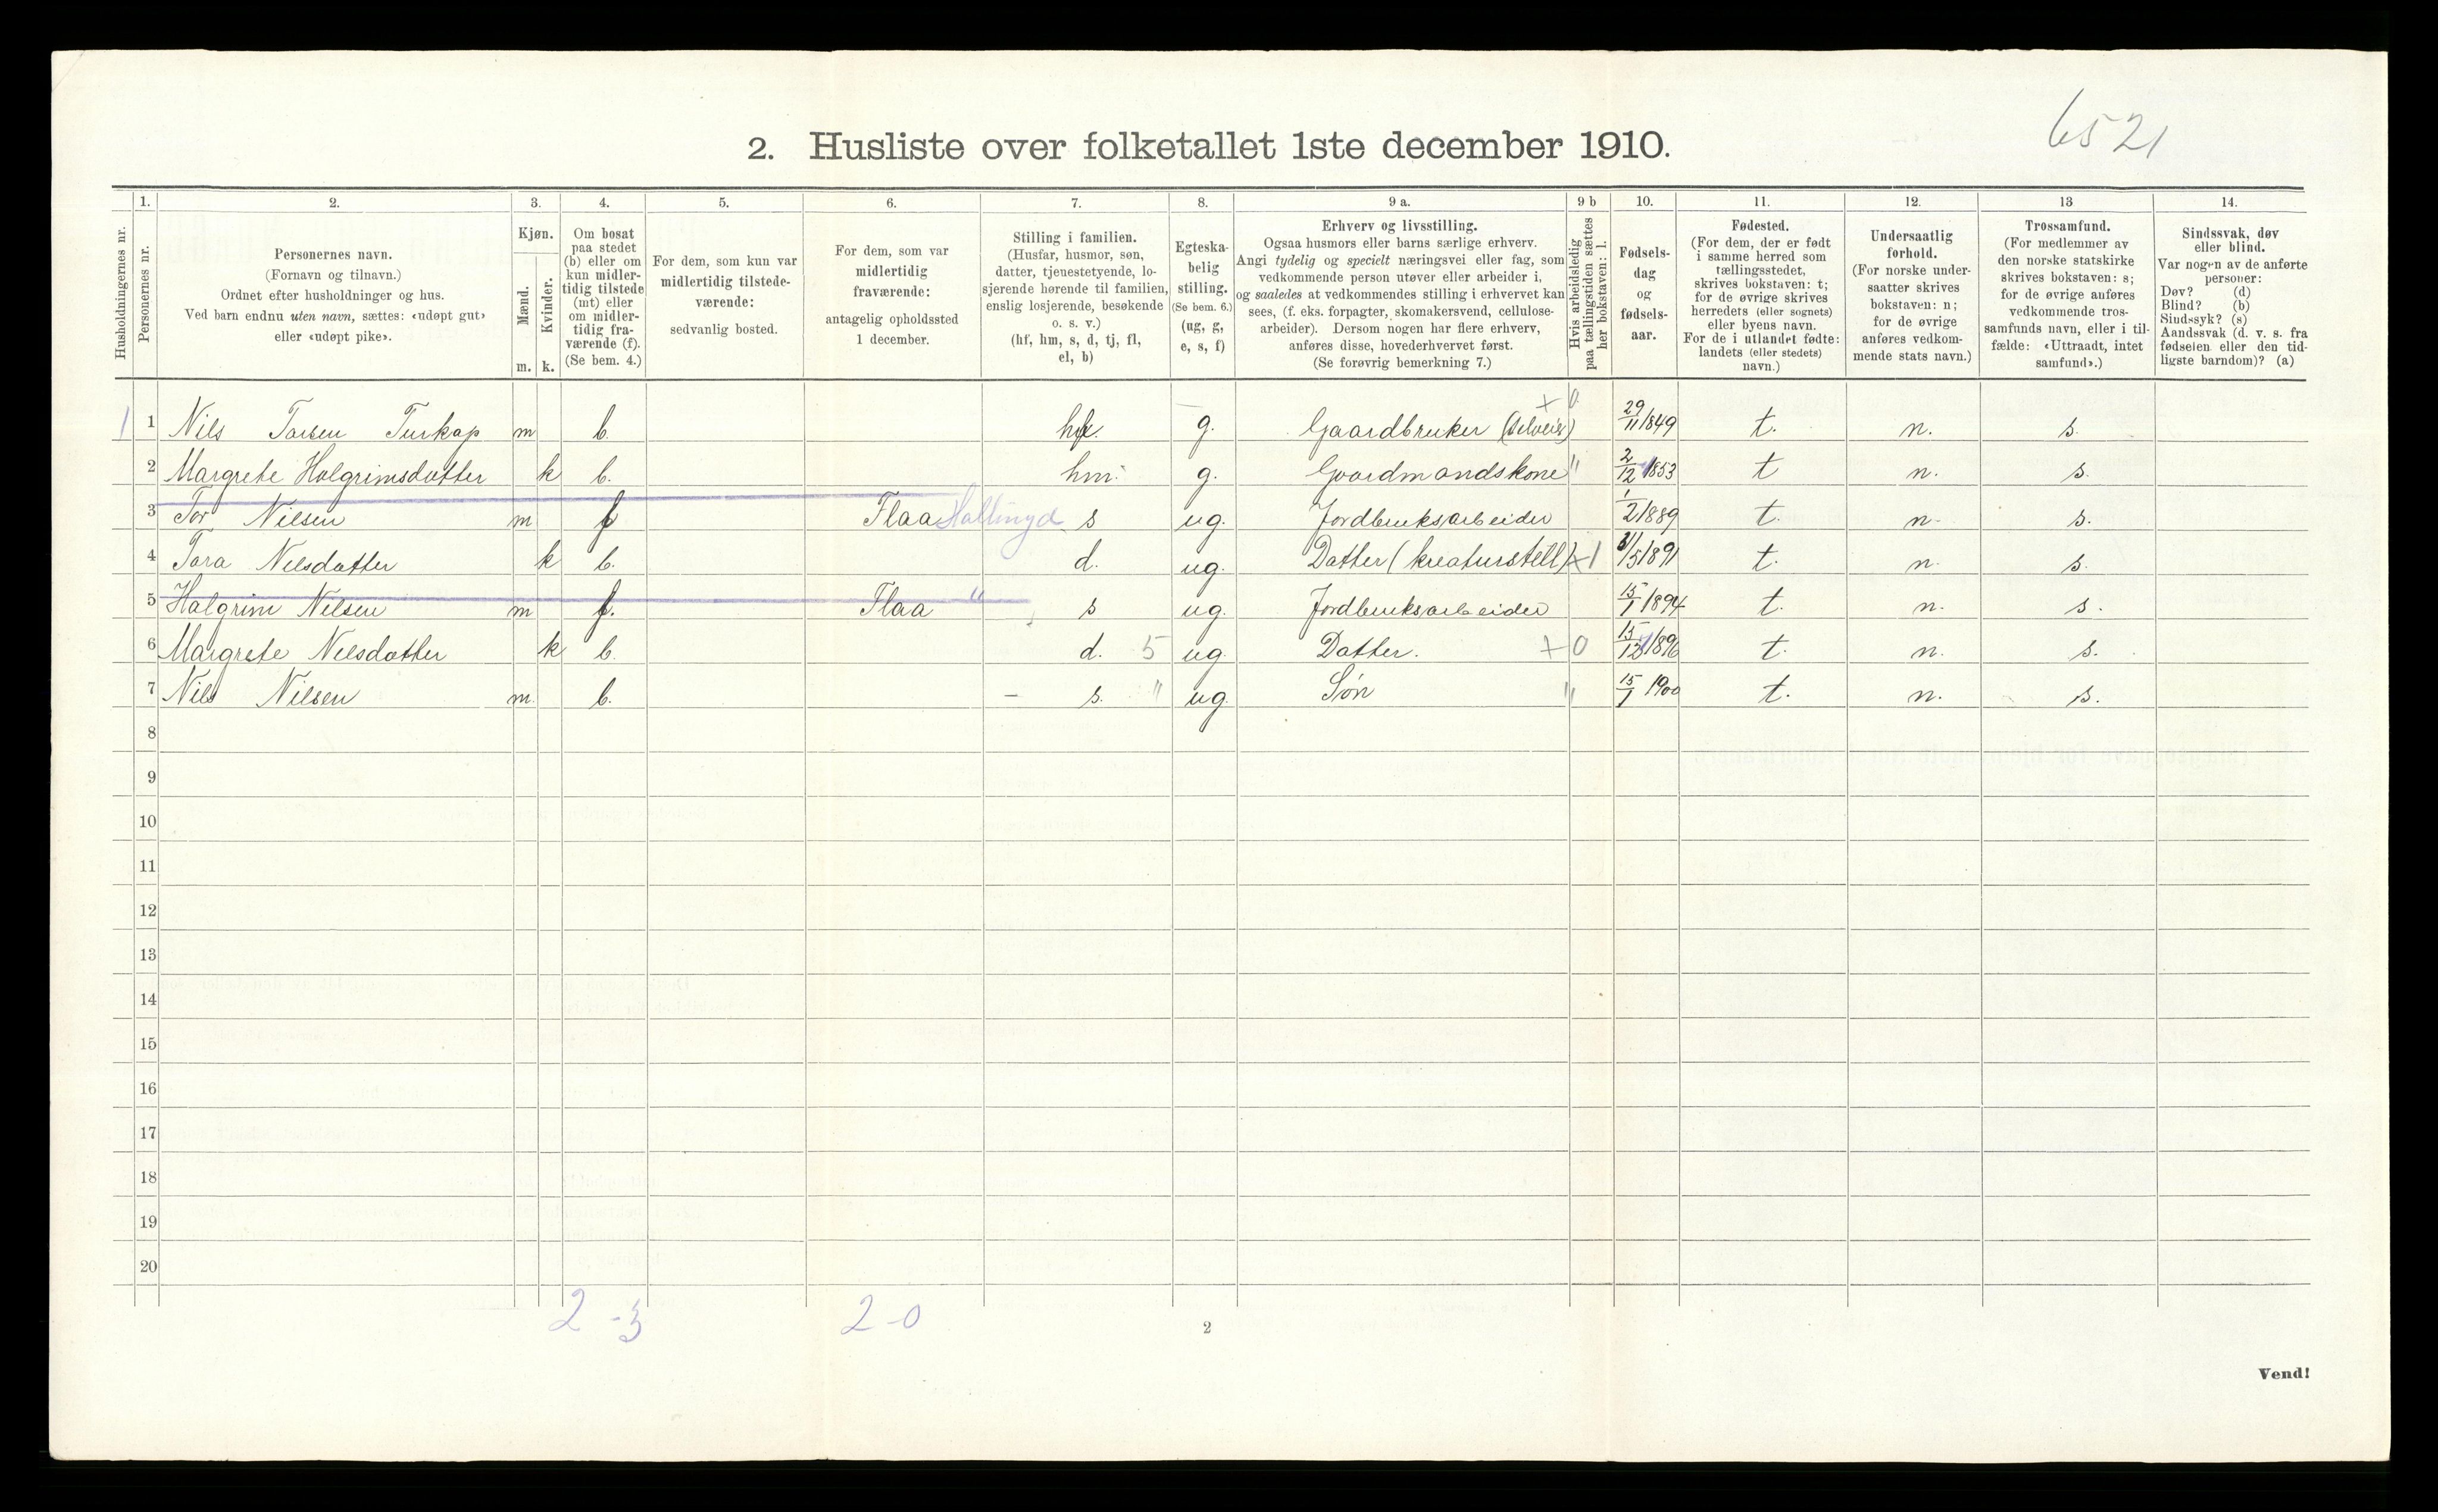 6521
2. Husliste over folketallet 1ste december 1910.
1. 2. 3. 4. 5. 6. 7. 8. 9 a. 9 b 10. 11. 12. 13 14.
Husholdningernes nr.
Personernes nr.
Personernes navn.
(Fornavn og tilnavn.)
Ordnet efter husholdninger og hus.
Ved barn endnu uten navn, sættes: «udøpt gut»
eller «udøpt pike».
Kjøn.
Mænd.
Kvinder.
m. k.
Om bosat
paa stedet
(b) eller om
kun midler-
tidig tilstede
(mt) eller
om midler-
tidig fra-
værende (f).
(Se bem. 4.)
For dem, som kun var
midlertidig tilstede-
værende:
sedvanlig bosted.
For dem, som var
midlertidig
fraværende:
antagelig opholdssted
1 december.
Stilling i familien.
(Husfar, husmor, søn,
datter, tjenestetyende, lo-
sjerende hørende til familien,
enslig losjerende, besøkende
o. s. v.)
(hf, hm, s, d, tj, fl,
el, b)
Egteska-
belig
stilling.
(Se bem. 6.)
(ug, g,
e, s, f)
Erhverv og livsstilling.
Ogsaa husmors eller barns særlige erhverv.
Angi tydelig og specielt næringsvei eller fag, som
vedkommende person utøver eller arbeider i,
og saaledes at vedkommendes stilling i erhvervet kan
sees, (f. eks. forpagter, skomakersvend, cellulose-
arbeider). Dersom nogen har flere erhverv,
anføres disse, hovederhvervet først.
(Se forøvrig bemerkning 7.)
Hvis arbeidsledig
paa tællingstiden sættes
her bokstaven: l.
Fødsels-
dag
og
fødsels-
aar.
Fødested.
(For dem, der er født
i samme herred som
tællingsstedet,
skrives bokstaven: t;
for de øvrige skrives
herredets (eller sognets)
eller byens navn.
For de i utlandet fødte:
landets (eller stedets)
navn.)
Undersaatlig
forhold.
(For norske under-
saatter skrives
bokstaven: n;
for de øvrige
anføres vedkom-
mende stats navn.)
Trossamfund.
(For medlemmer av
den norske statskirke
skrives bokstaven: s;
for de øvrige anføres
vedkommende tros-
samfunds navn, eller i til-
fælde: «Uttraadt, intet
samfund».)
Sindssvak, døv
eller blind.
Var nogen av de anførte
personer:
Døv? (d)
Blind? (b)
Sindssyk? (s)
Aandssvak (d. v. s. fra
fødselen eller den tid-
ligste barndom)? (a)
1 1 Nils Torsen Turkop m b. hf. g. Gaardbruker (Selveier) x 0 29/11 1849 t. n. s.
2 Margrete Halgrimsdatter k b. hm. g. Gaardmandskone " 2/12 1853 t n. s.
3 Tor Nilsen m f Flaa Hallingd s ug. Jordbruksarbeider 1/2 1889 t. n. s.
4 Tora Nilsdatter k b. d. ug. Datter (kreaturstell) x 1 /5 1891 t. n. s.
5 Halgrim Nilsen m f. Flaa " s ug. Jordbruksarbeider 15/1 1894 t. n. s.
6 Margrete Nilsdatter k b. d. 5 ug. Datter. x 0 15/12 1896 t. n. s.
7 Nils Nilsen m. b. - s. " ug. Søn " 15/1 1900 t. n. s.
8
9
10
11
12
13
14
15
16
17
18
19
20
2 - 3 2 - 0
2
Vend!